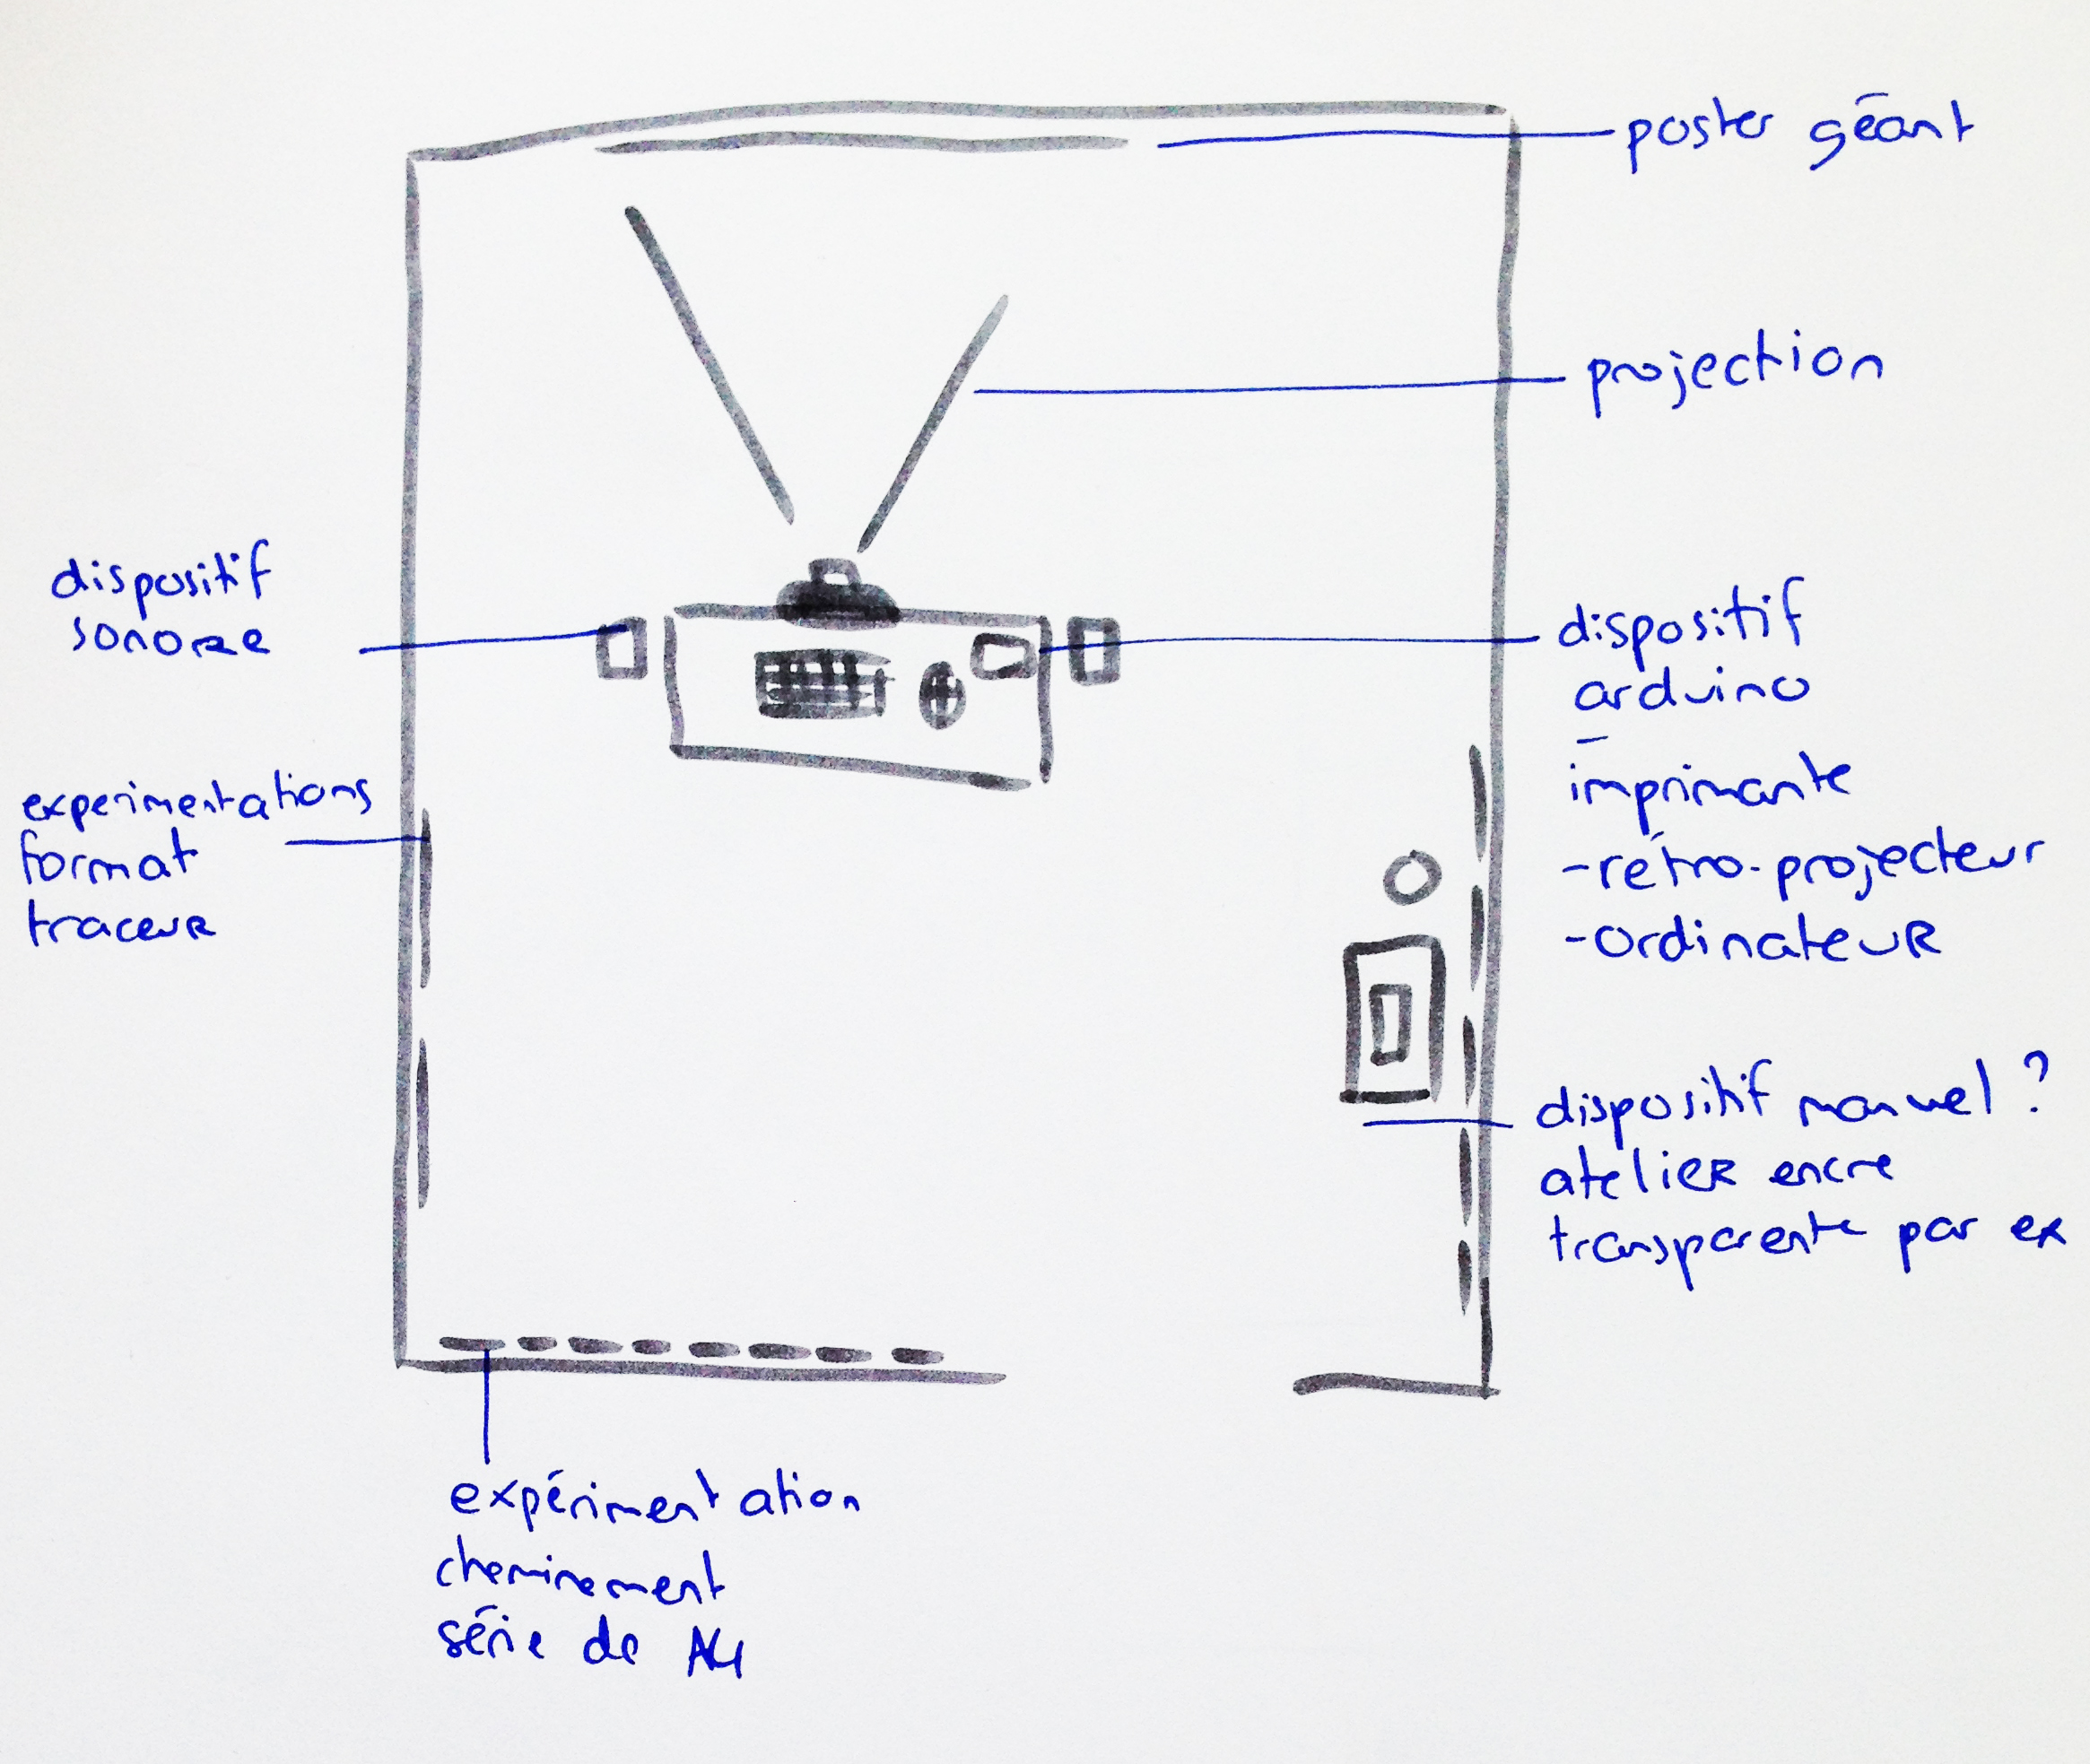 poster géant
projection
dispositif
sonore
dispositif
arduino
-
imprimante
-rétro-projecteur
-ordinateur
experimentations
format
traceur
dispositif manuel ?
atelier encre
transparente par ex
expérimentation
cheminement
série de A4